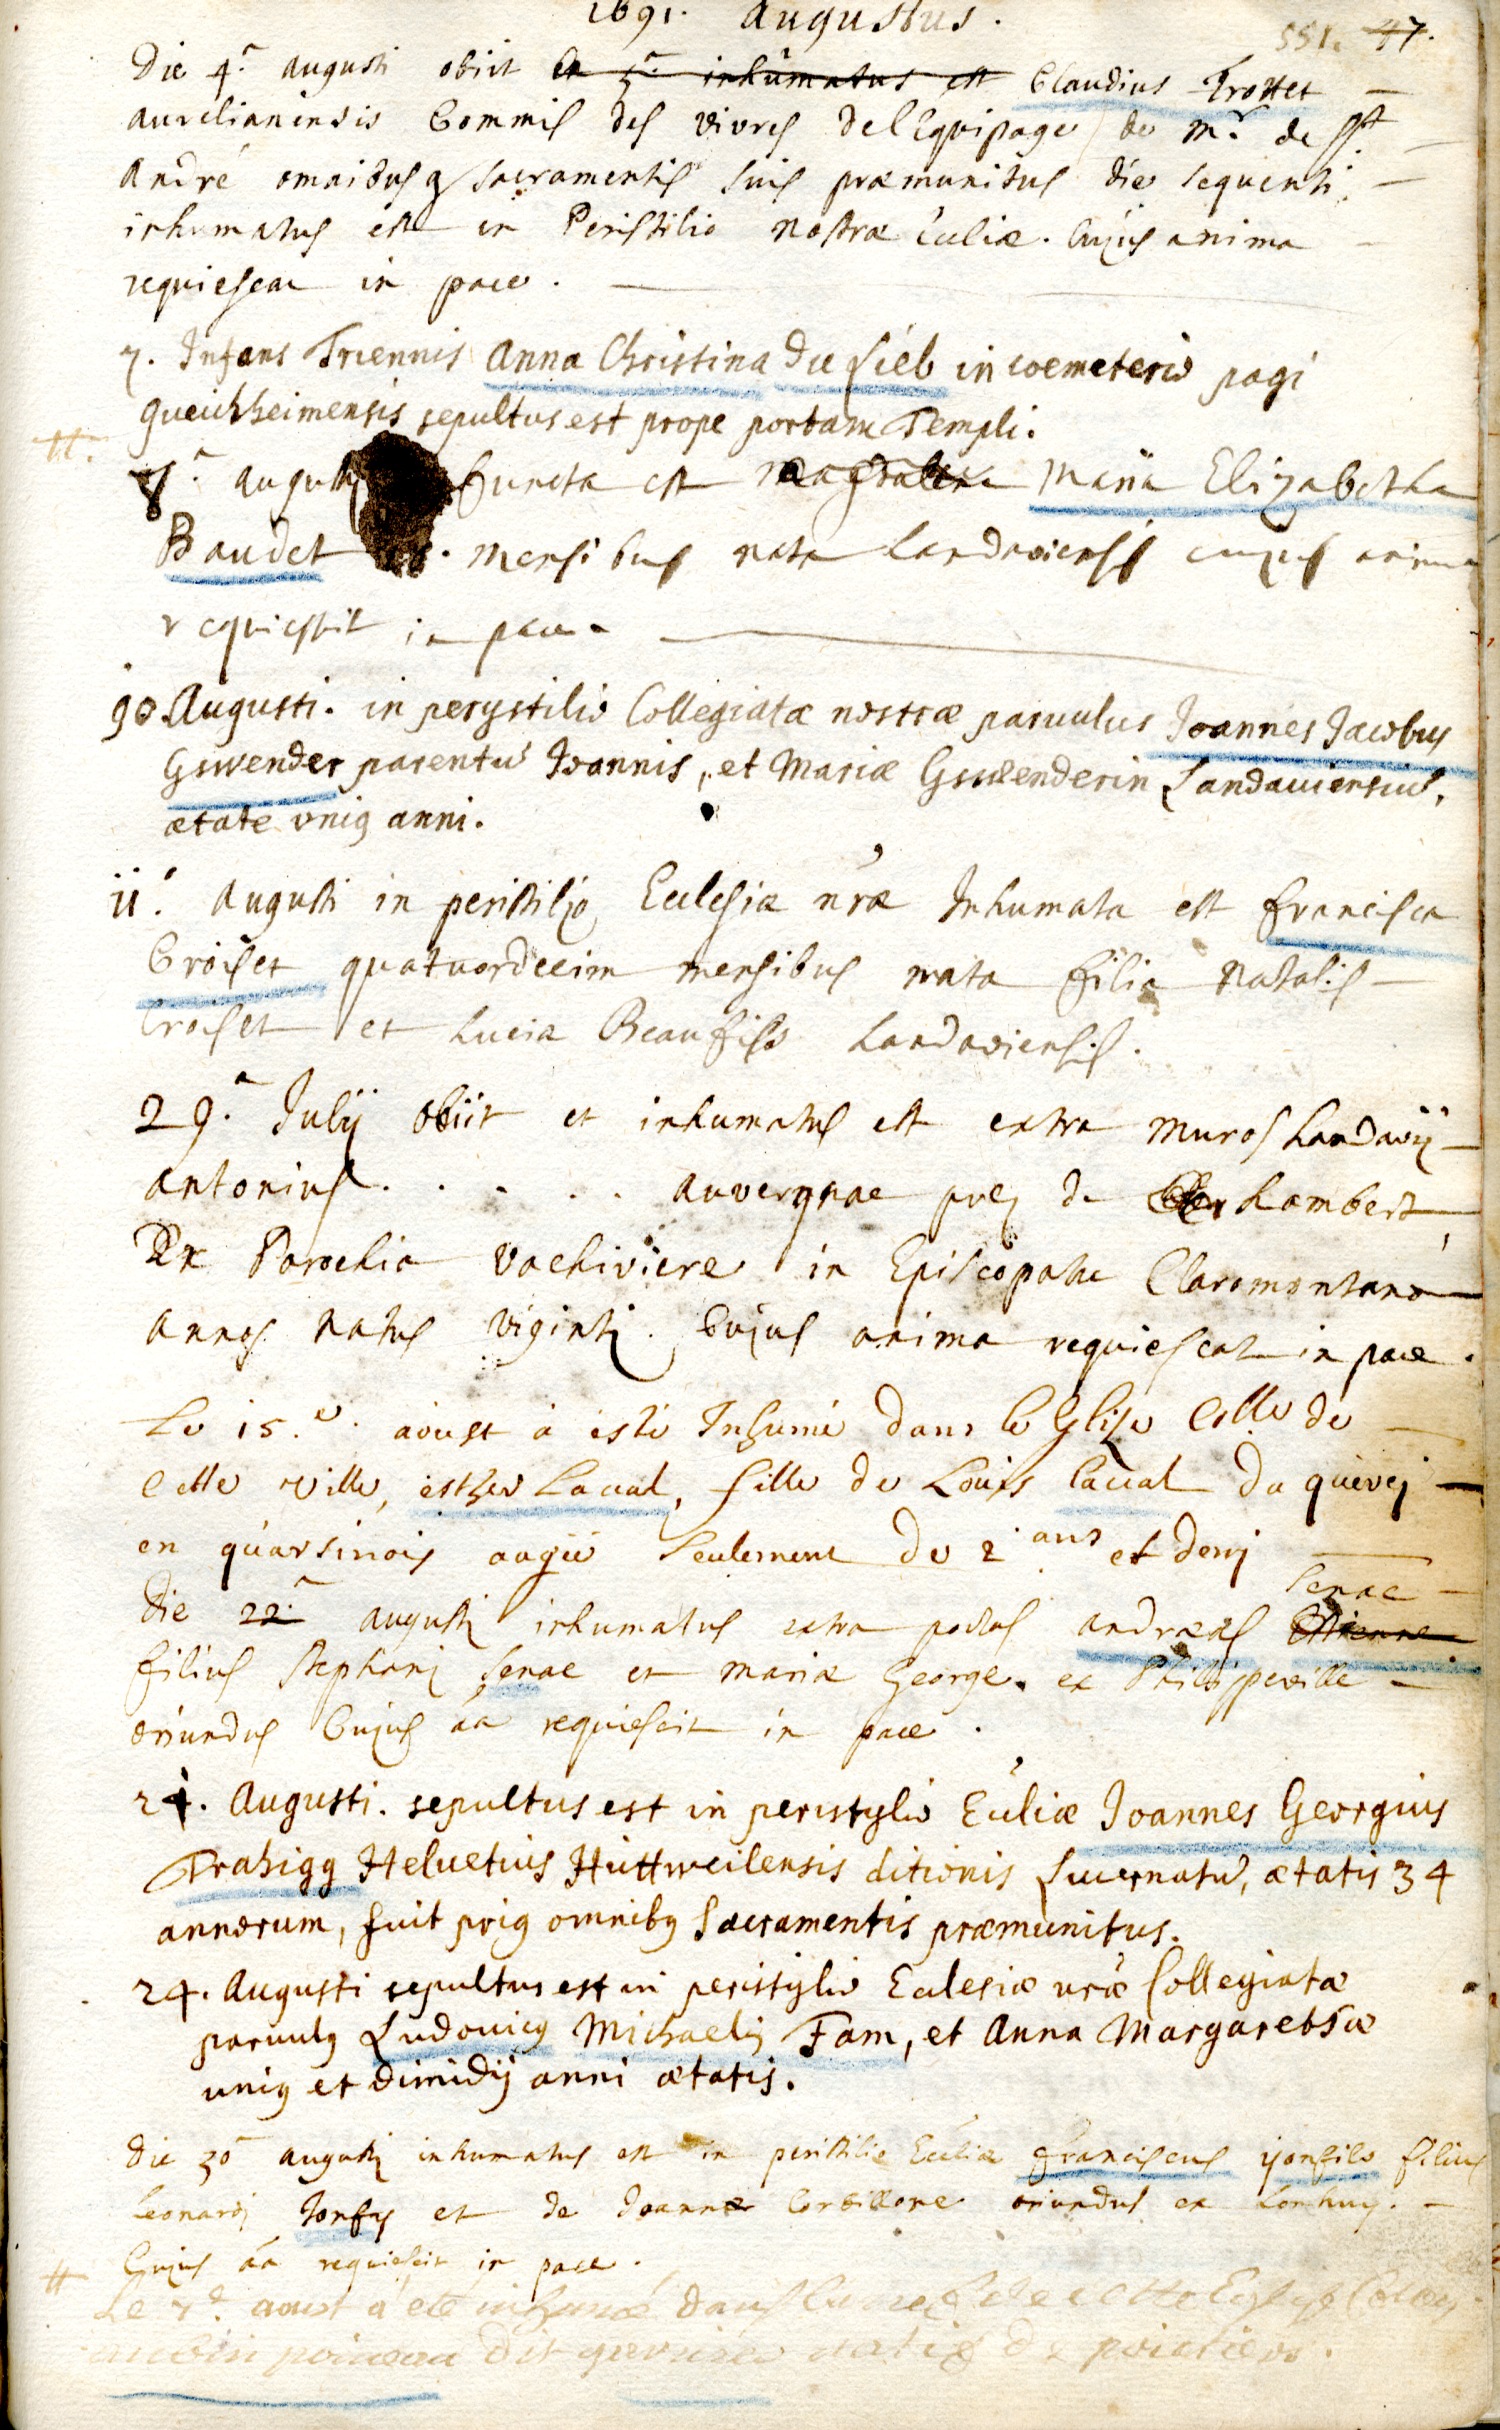 1691. Augustus.
551. 47.
Die 4.a augusti obiit et 5.a inhumatus est Claudius Trottet
aurelianensis Commis des vivres de l'Equipage de Mr. de St.
André omnibusq sacramentis suis præmunitus die sequenti
inhumatus est in Peristilio nostræ Eccliæ. Cujus anima
requiescat in pace.
7. Infans Triennis Anna Christina du Lieb in coemeterio pagi
queichheimensis sepultus est prope portam Templi.
8.a augusti functa est Magdalena Maria Elizabetha
Baudet mensibus nata Landaviensis cujus anima
requiescit in pace
10. Augusti. in perystilio Collegiatæ nostræ parvulus Joannes Jacobus
Gswender parentū Joannis, et Mariæ Gswenderin Landaviensiū,
ætate unig anni.
ii.a Augusti in peristilio Ecclesiæ nræ Inhumata est francisca
Croiset quatuordecim mensibus nata filia Natalis
Croiset et Lucia Beaufils Landaviensis.
29.a Julij obiit et inhumatus est extra muros Landavij
antonius. . . . . . auvergnae prez de Lambert
Ex Parochia Vachiviere in Episcopatu Claromontano
annos natus viginti. Cujus anima requiescat in pace.
Le 15.e aoust a esté Inhumé dans le Glise Colle de
Cette ville, esther Laval, fille de Louis Laval du quercj
en quarsinois augée seulement de 2 ans et demj
Die 22.a augusti inhumatus extra portas andræas Etienne Senac
filius Stephani Senac et mariæ George. ex Philippeville
oriundus Cujus āā requiescit in pace.
24. Augusti. sepultus est in peristylio Ecliæ Joannes Georgius
Trahigg Heluetius Hüttweilensis ditionis Lucernatū, ætatis 34
annorum, fuit prig omnibg Sacramentis præmunitus.
24. Augusti sepultus est in peristylio Ecclesiæ nræ Collegiatæ
parvulg Ludovicg Michaelis Fam, et Anna Margarethæ
unig et dimidij anni ætatis.
Die 30 augusti inhumatus est in peristilio Ecliæ franciscus filius
Leonardj et de Joanna oriundus ex
Cujus āā requiescit in pace.
Le 7e. aoust a été inhumé dans la nef de cette Eglise
dit natif de